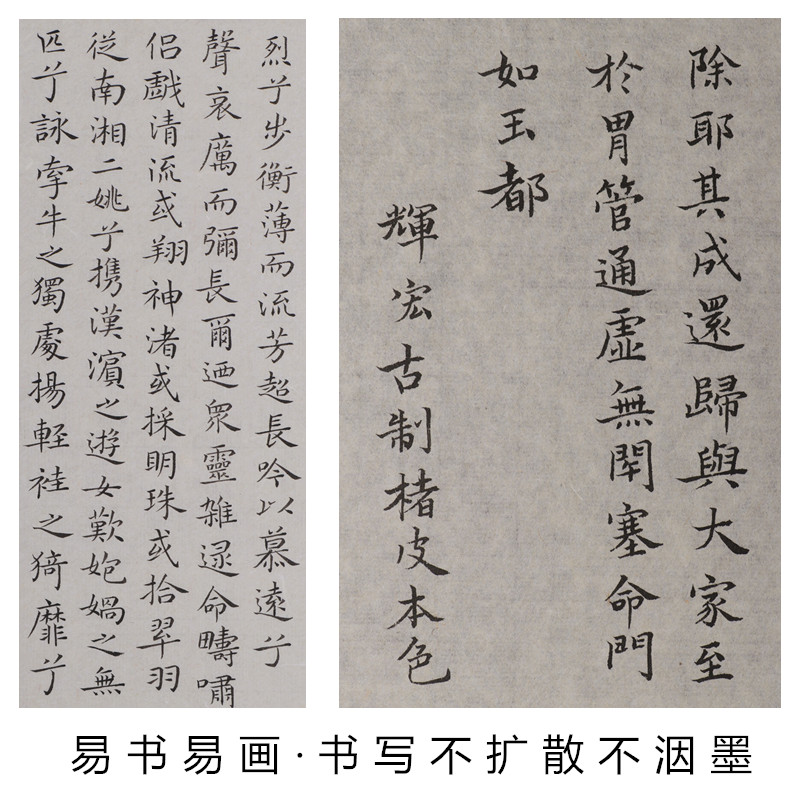 烈兮步衡薄而流芳超長吟以慕遠兮
聲哀厲而彌長爾迺眾靈雜遝命疇嘯
侶戲清流或翔神渚或採明珠或拾翠羽
從南湘二姚兮携漢濱之遊女歎匏媧之無
匹兮詠牽牛之獨處揚軽袿之猗靡兮
除耶其成還歸與大家至
於胃管通虛無閇塞命門
如玉都
輝宏古制楮皮本色
易书易画·书写不扩散不洇墨